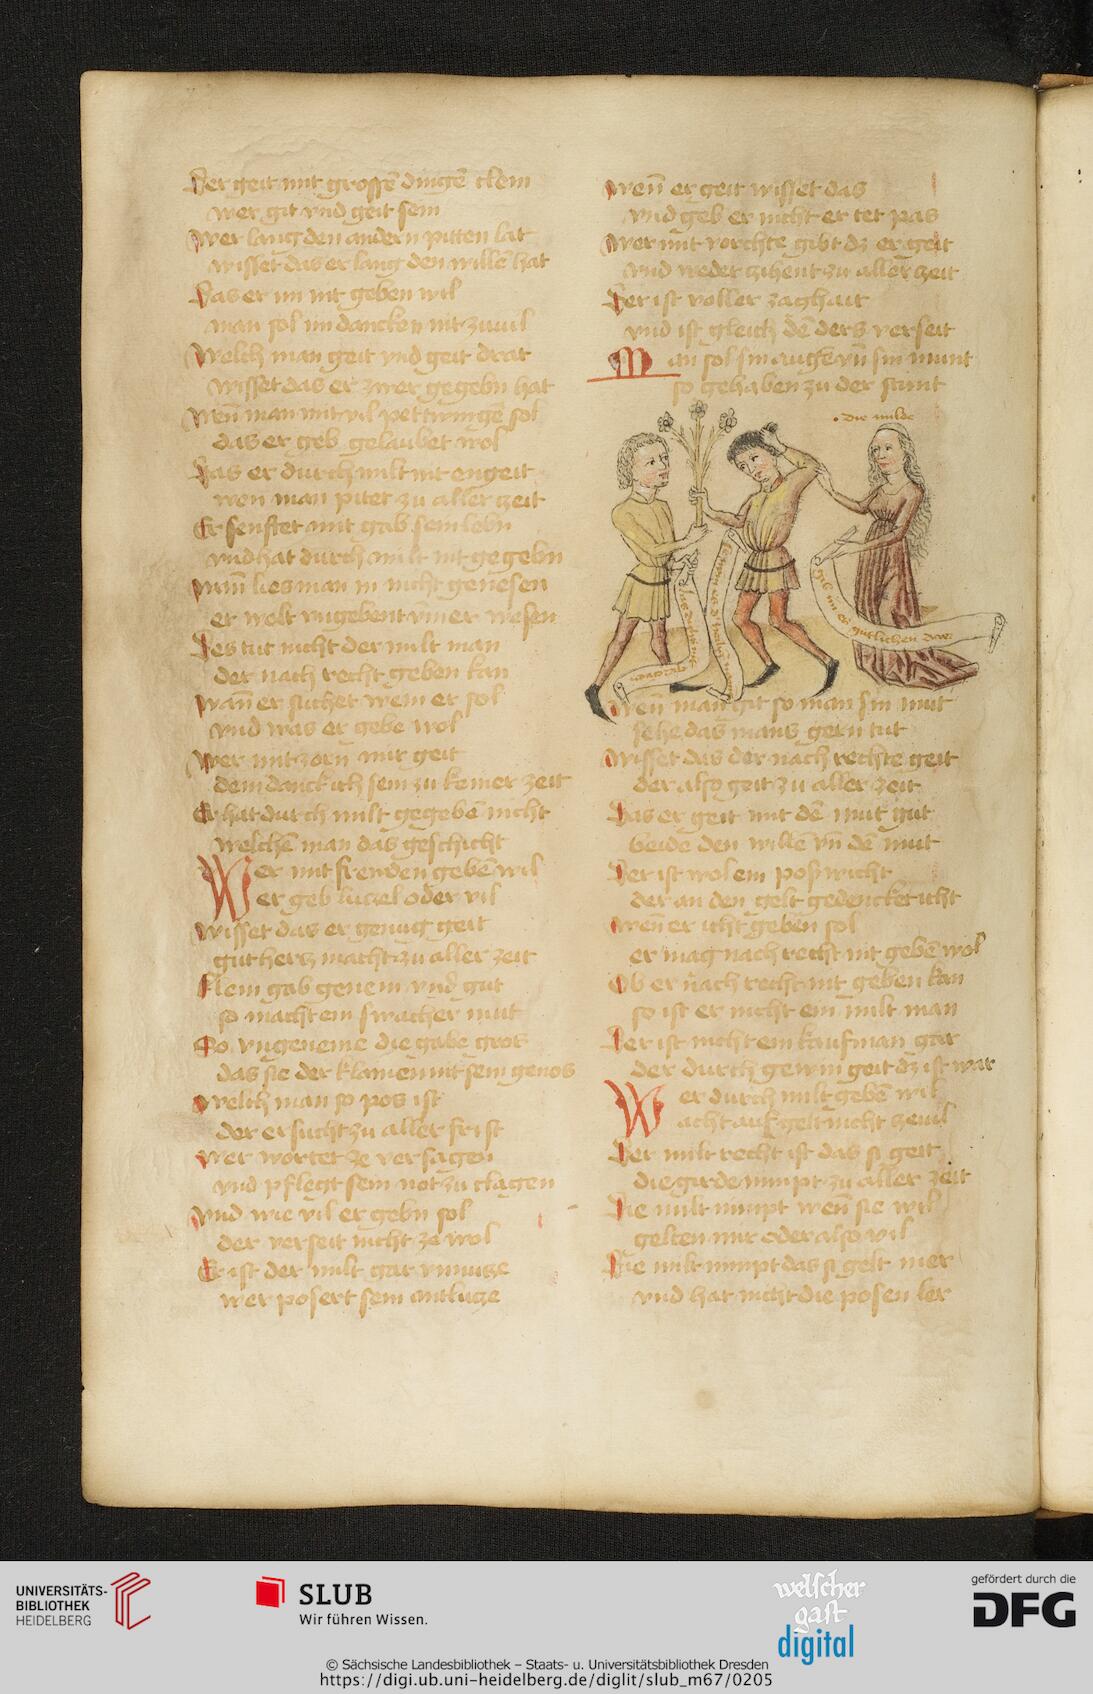 Der geit mit grossē dingē clein
wer git vnd geit sein
Wer lang den andern pitten lat
wisset das er lang den willē hat
Das er im nit geben wil
man sol im dancken nit zuuil
Welch man geit vnd geit drat
wisset das er zwer gegebn hat
Wen man mit vil pettwingē sol
das er geb gelaubet wol
Das er durch milt nit engeit
wen man pitet zu aller zeit
Er senftet mit gab sein lebn
vnd hat durch milt nit gegebn
wann lies man in nicht genesen
er wolt vngebent ymer wesen
Des tut nicht der milt man
der nach recht geben kan
wann er suchet wem er sol
vnd was er gebe wol
Wer mit zorn mir geit
dem danck ich sein zu keiner zeit
Er hat durch milt gegebē nicht
welchē man das geschicht
Wer mit freuden gebē wil
er geb lutzel oder vil
wisset das er genug geit
gut hertz macht zu aller zeit
Klein gab genem vnd gut
so macht ein swacher mut
So vngeneme die gabe gros
das sie der klainen nit sein genos
welch man so pos ist
der er sucht zu aller frist
wer wortet ze versagen
vnd pflegt sein not zu clagen
Vnd wie vil er gebn sol
der verseit nicht ze wol
Er ist der milt gar vnnutze
wer posert sein antlutze
wen er geit wisset das
vnd geb er nicht er tet pas
Wer mit vorchte gibt dz er geit
vnd weder zihent zu aller zeit
Der ist voller zaghait
vnd ist gleich dē ders verseit
Man sol sin augē vn sin munt
so gehaben zu der stunt
die milde
gib im es gutlichen
Wen man git so man sin mut
sehe das mans gern tut
wisset das der nach rechte geit
der also geit zu aller zeit
Das er geit mit dē mut gut
beide den willē vn dē mut
Der ist wol ein poswicht
der an den gelt gedencket icht
wen er icht geben sol
er mag nach recht nit gebē wol
Ob er nach recht nit geben kan
so ist er nicht ein milt man
Der ist nicht ein kaufman gar
der durch gewin geit dz ist war
Wer durch milt gebē wil
acht auf gelt nicht zeuil
Der milt recht ist das si geit
die girde nimpt zu aller zeit
Die milt nimpt wen sie wil
gelten mir oder also vil
Die milt nimpt das si gelt mer
vnd hat nicht die posen ler
UNIVERSITÄTS-
BIBLIOTHEK
HEIDELBERG
SLUB
Wir führen Wissen.
welscher
gast
digital
gefördert durch die
DFG
© Sächsische Landesbibliothek – Staats- u. Universitätsbibliothek Dresden
https://digi.ub.uni-heidelberg.de/diglit/slub_m67/0205